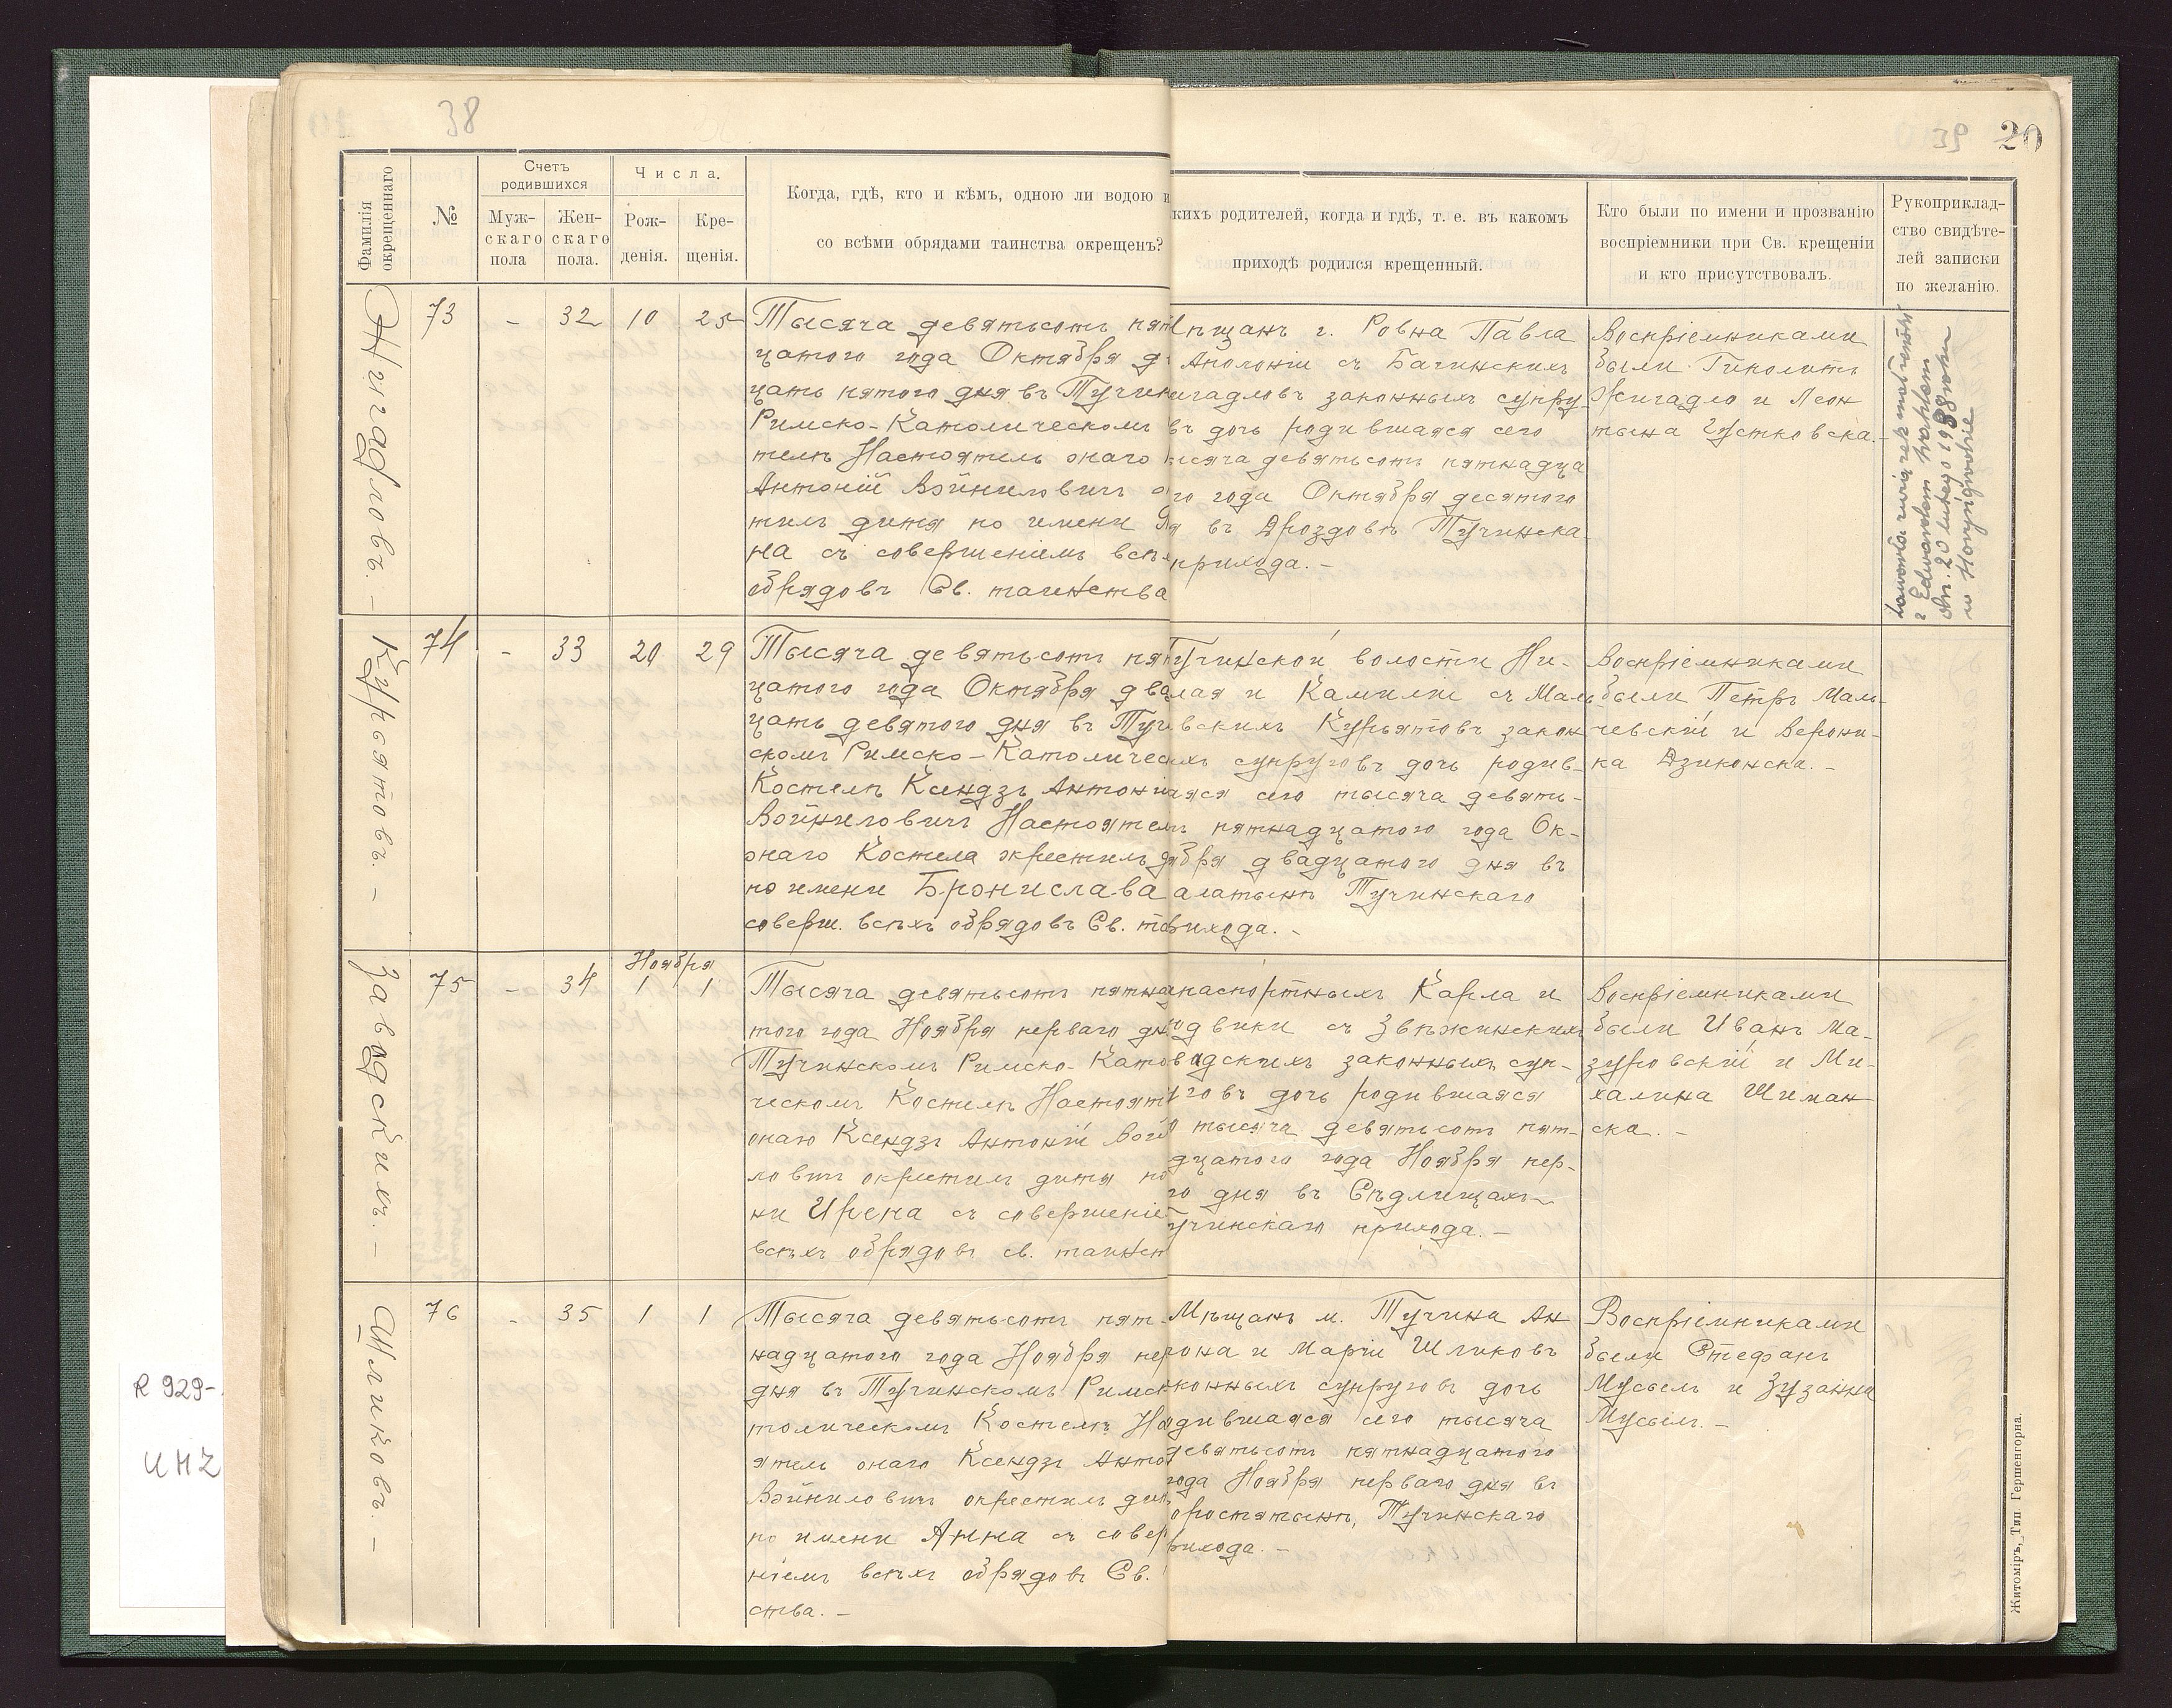 38
20
Фамилія окрещеннаго
№
Счетъ родившихся
Муж-
скаго
пола
Жен-
скаго
пола.
Числа.
Рож-
денія.
Кре-
щенія.
Когда, гдѣ, кто и кѣмъ, одною ли водою и
со всѣми обрядами таинства окрещенъ?
кихъ родителей, когда и гдѣ, т. е. въ какомъ
приходѣ родился крещенный.
Кто были по имени и прозванію
воспріемники при Св. крещеніи
и кто присутствовалъ.
Рукоприклад-
ство свидѣте-
лей записки
по желанію.
Жигадловъ. –
73 – 32 10 25
Тысяча девятьсотъ пят
цатого года Октября д
цать пятого дня въ Тучин
Римско-Католическомъ
телѣ Настоятель онаго
Антоній Войниловичъ о
тилъ дитя по имени
на съ совершеніемъ всѣ
обрядовъ Св. таинства
ѣщанъ г. Ровна Павла
Аполоніи съ Багинскихъ
игадловъ законныхъ супру-
въ дочь родившаяся сего
ысяча девятьсотъ пятнадца
го года Октября десятого
я въ Дроздовѣ Тучинска-
прихода. –
Воспріемниками
были Гиполитъ
Жигадло и Леон
тына Густковска. –
z Edwardem
dn. 20 lutego 1938 roku
w Horyńgrodzie
Курьятовъ. –
74 – 33 20 29
Тысяча девятьсотъ пят
цатого года Октября два
цать девятого дня въ Туч
скомъ Римско-Католичес
Костелѣ Ксендзъ Антоні
Войниловичъ Настоятел
онаго Костела окрестилъ д
по имени Бронислава
соверш. всѣхъ обрядовъ Св. та
Тучинской волости Ни-
лая и Камиліи съ Маль
вскихъ Курьятовъ закон
хъ супруговъ дочь родив-
аяся сего тысяча девять-
ъ пятнадцатого года Ок-
ября двадцатого дня въ
алатынѣ Тучинскаго
рихода. –
Воспріемниками
были Петръ Маль-
чевскій и Верони-
ка Дзиконска. –
Заводскихъ. –
Ноября
75 – 34 1 1
Тысяча девятьсотъ пятна
того года Ноября перваго дн
Тучинскомъ Римско-Като
ческомъ Костелѣ Настоят
онаго Ксендзъ Антоній Вой
ловичъ окрестилъ дитя по
ни Ирена съ совершеніе
всѣхъ обрядовъ св. таинст
паспортныхъ Карла и
юдвики съ Звѣжинскихъ
водскихъ законныхъ суп-
уговъ дочь родившаяся
о тысяча девятьсотъ пят-
дцатого года Ноября пер-
го дня въ Сѣдлищахъ
учинскаго прихода. –
Воспріемниками
были Иванъ Ма-
зуровскій и Ми-
халина Шиман
ска. –
Шликовъ. –
76 – 35 1 1
Тысяча девятьсотъ пят-
надцатого года Ноября пер
дня въ Тучинскомъ Римск
толическомъ Костелѣ На
ятель онаго Ксендзъ Анто
Войниловичъ окрестилъ дит
по имени Анна съ совер
ніемъ всѣхъ обрядовъ Св.
ства. –
Мѣщанъ м. Тучина Ан
рона и Маріи Шликовъ
конныхъ супруговъ дочь
одившаяся сего тысяча
девятьсотъ пятнадцатого
года Ноября перваго дня въ
оростятынѣ, Тучинскаго
рихода. –
Воспріемниками
были Стефанъ
Мусьилъ и Зузанна
Мусьилъ. –
R 929-
Житоміръ, Тип. Гершенгорна.